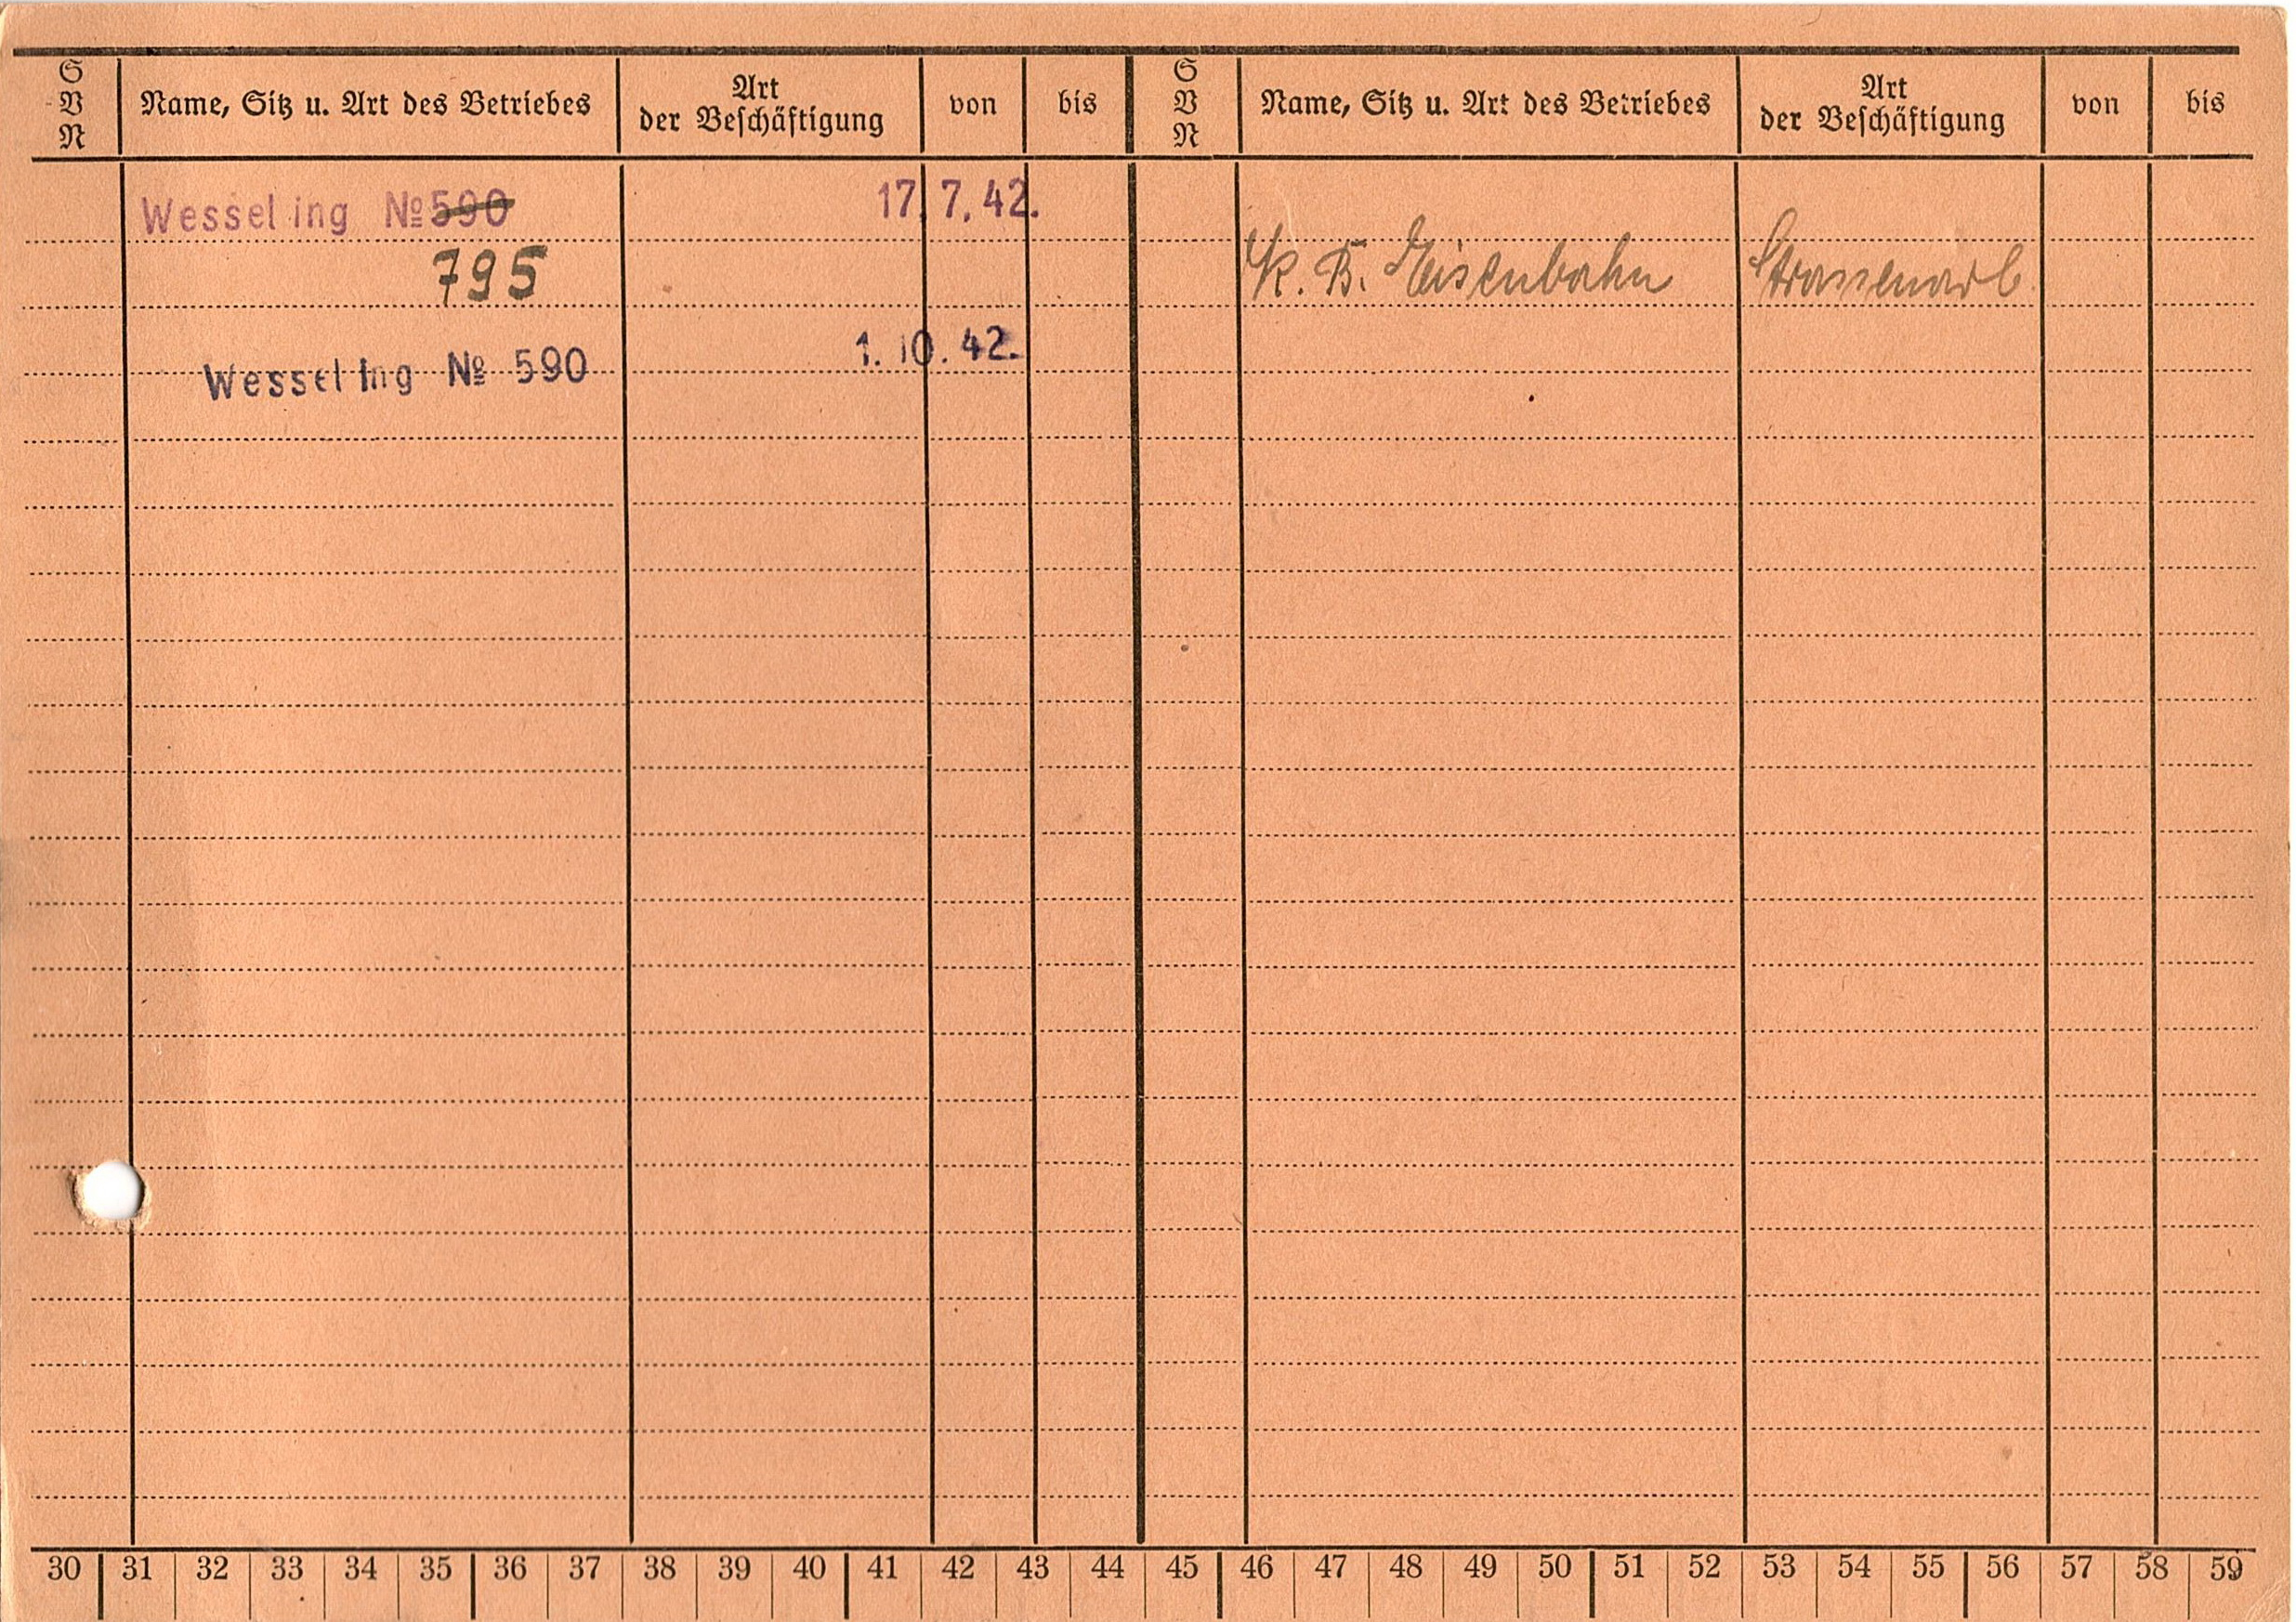 S V N Name, Sitz u. Art des Betriebes Art der Beschäftigung von bis S V N Name, Sitz u. Art des Betriebes Art der Beschäftigung von bis
Wesseling № 590 17.7.42.
795
K. B. Eisenbahn Strassenarb.
1.10.42.
Wesseling № 590
30 31 32 33 34 35 36 37 38 39 40 41 42 43 44 45 46 47 48 49 50 51 52 53 54 55 56 57 58 59